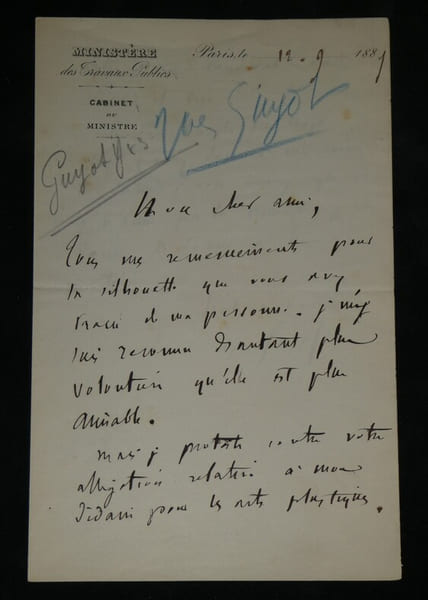 MINISTÈRE
des Travaux Publics
CABINET
DU
MINISTRE
Paris, le 12. 9 188
Guyot Yves
Yves Guyot
Mon cher ami,
Tous mes remerciements pour
la silhouette que vous avez
tracé de ma personne. j'm'y
suis reconnu d'autant plus
volontiers qu'elle est plus
aimable.
mais je proteste contre votre
allégation relative à mon
dédain pour les arts plastiques.